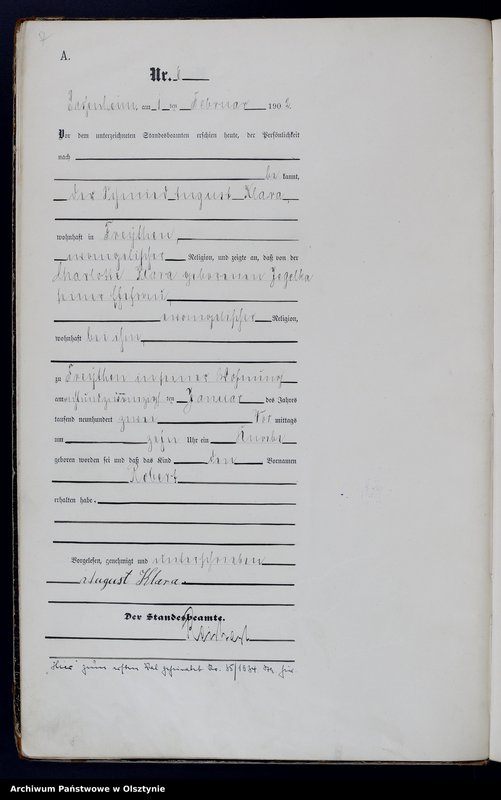 A.
Nr. 8
am 1 ten Februar 1902.
Vor dem unterzeichneten Standesbeamten erschien heute, der Persönlichkeit
nach
be kannt,
der Schmied August Klara,
wohnhaft in Freythen,
evangelischer Religion, und zeigte an, daß von der
Charlotte Klara geborenen Jegelka
seiner Ehefrau,
evangelischer Religion,
wohnhaft bei ihm,
zu Freythen in seiner Wohnung
am ten Januar des Jahres
tausend neunhundert zwei Vor mittags
um zehn Uhr ein Knabe
geboren worden sei und daß das Kind den Vornamen
Robert
erhalten habe.
Vorgelesen, genehmigt und unterschrieben
August Klara.
Der Standesbeamte.
zum ersten Mal geheiratet Nr.
Archiwum Państwowe w Olsztynie